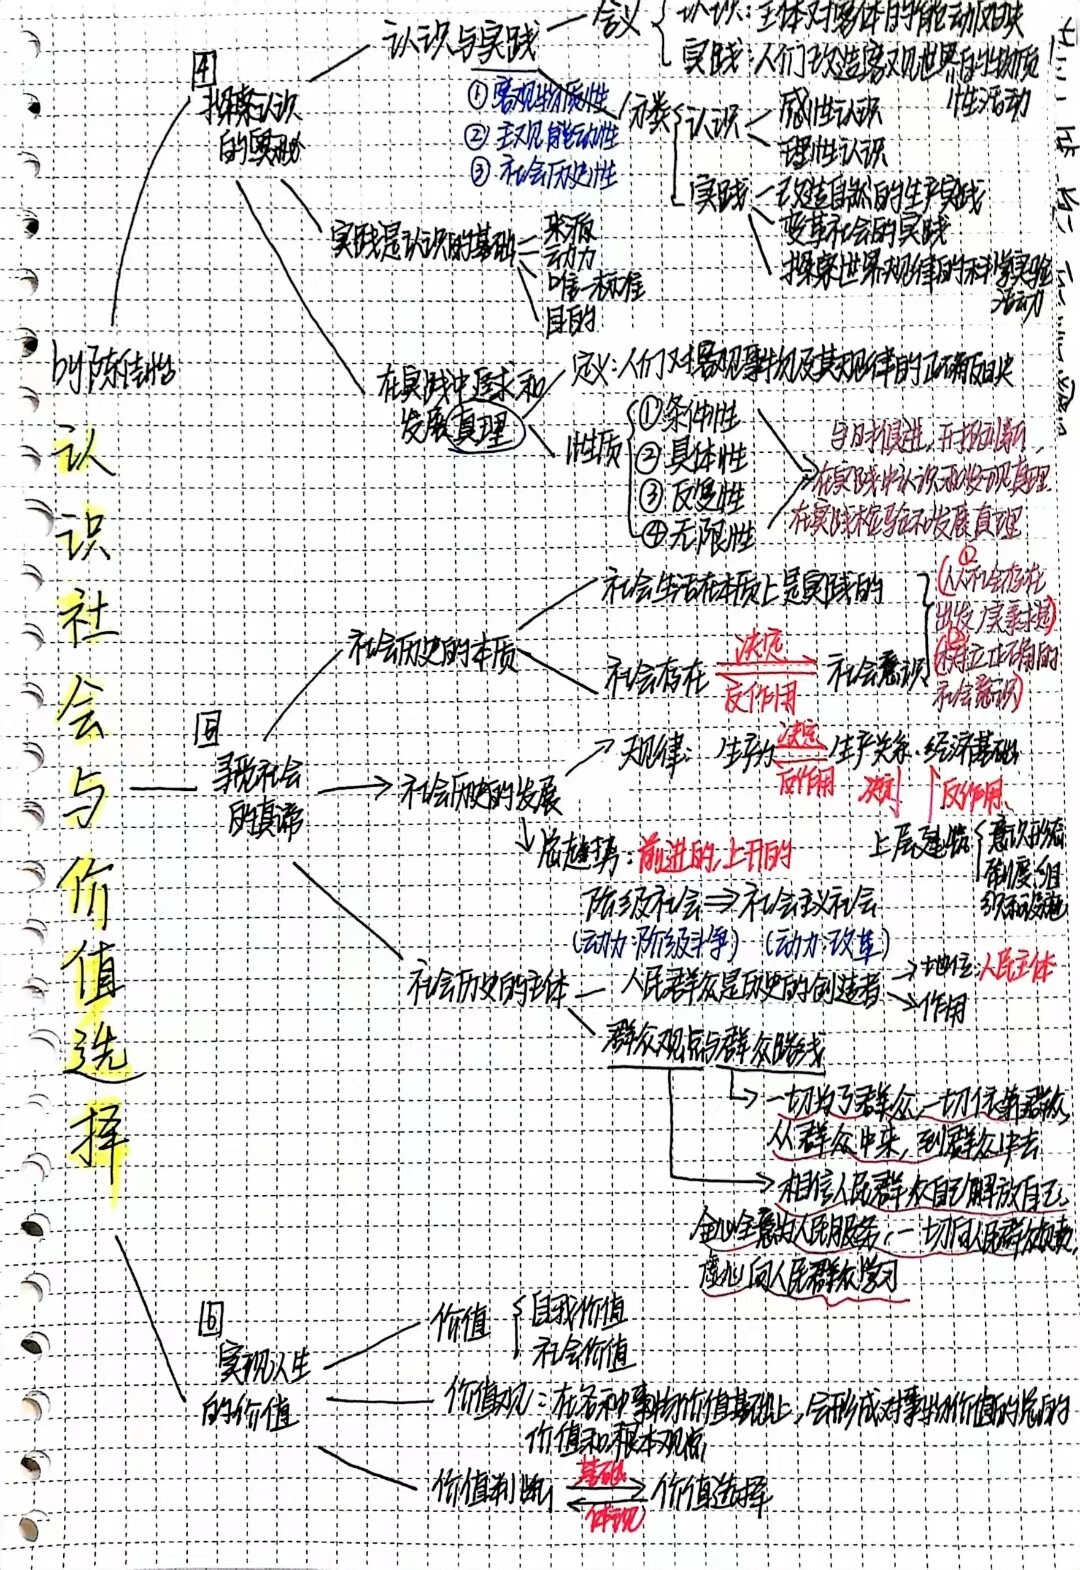 认识社会与价值选择
4
探索认识
的奥秘
认识与实践
含义
认识：主体对客体的能动反映
实践：人们改造客观世界的物质
性活动
①客观物质性
②主观能动性
③社会历史性
分类
认识
感性认识
理性认识
实践
改造自然的生产实践
变革社会的实践
探索世界规律的科学实验
活动
实践是认识的基础
来源
动力
唯一标准
目的
在实践中追求和
发展真理
定义：人们对客观事物及其规律的正确反映
性质
①条件性
②具体性
③反复性
④无限性
与时俱进，开拓创新，
在实践中认识和发现真理
在实践检验和发展真理
5
寻觅社会
的真谛
社会历史的本质
社会生活在本质上是实践的
社会存在
决定
反作用
社会意识
①
(从社会存在
出发/实事求是)
②
(树立正确的
社会意识)
社会历史的发展
规律：
生产力
决定
反作用
生产关系·经济基础
决定
反作用
上层建筑
意识形态
制度、组
织和设施
总趋势：前进的，上升的
阶级社会⇒社会主义社会
(动力：阶级斗争)
(动力：改革)
社会历史的主体
人民群众是历史的创造者
地位：人民主体
作用
群众观点与群众路线
一切为了群众，一切依靠群众，
从群众中来，到群众中去
相信人民群众自己解放自己，
全心全意为人民服务，一切向人民群众负责，
虚心向人民群众学习
6
实现人生
的价值
价值
自我价值
社会价值
价值观：在各种事物价值基础上，会形成对事物价值的总的
价值和根本观点
价值判断
基础
体现
价值选择